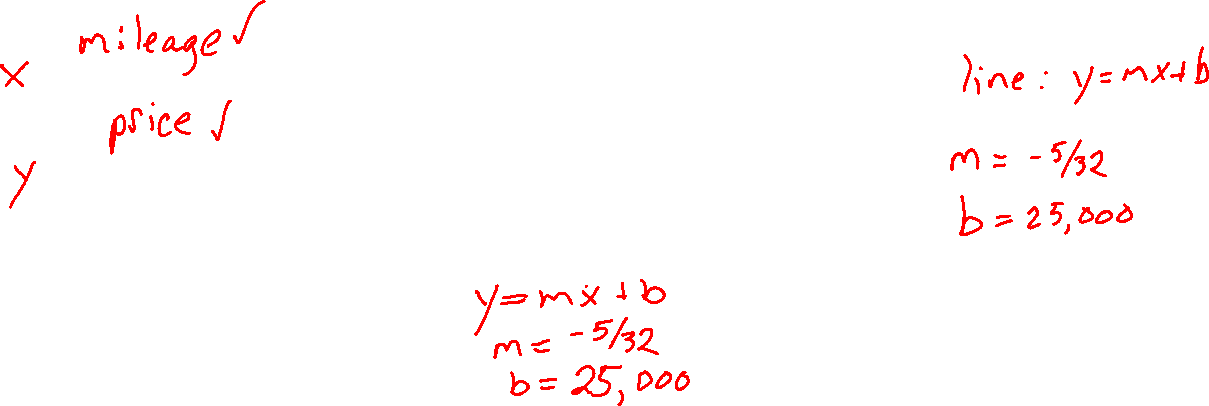 mileage ✓
x
price ✓
y
line: y=mx+b
m = -5/32
b = 25,000
y=mx+b
m = -5/32
b = 25,000